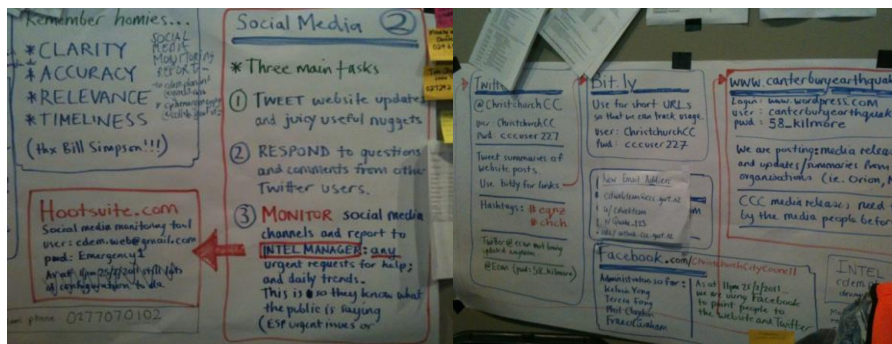 Remember homies...
* CLARITY
* ACCURACY
* RELEVANCE
* TIMELINESS
(thx Bill Simpson!!!)
SOCIAL
MEDIA
MONITORING
REPORT
Hootsuite.com
Social media monitoring tool
user: cdem.web@gmail.com
pwd: Emergency1
As at 8pm 25/2/2011 still lots
of configuration to do
phone: 0277070102
Social Media 2
* Three main tasks
1 TWEET website updates
and juicy useful nuggets
2 RESPOND to questions
and comments from other
Twitter users.
3 MONITOR social media
channels and report to
INTEL MANAGER: any
urgent requests for help;
and daily trends.
This is so they know what
the public is saying
(ESP urgent issues or
Twitt
@ChristchurchCC
user: ChristchurchCC
pwd: cccuser227
Tweet summaries of
website posts.
Use bitly for links.
Hashtags: #eqnz
#chch
Twitter @ecan not being
updated anymore
@Ecan (pwd: 58_kilmore)
Bit.ly
Use for short URLs
so that we can track usage.
user: ChristchurchCC
pwd: cccuser227
New Email Address
Facebook.com/ChristchurchCityCouncil
Administrators so far:
As at 11pm 25/2/2011
we are using Facebook
to point people to
the website and Twitter
www.canterburyearthquak
Login: www.wordpress.com
user: canterburyearthquake
pwd: 58_kilmore
We are posting: media releas
and updates/summaries from
organisations (ie. Orion,
CCC media releases need
by the media people before
INTEL